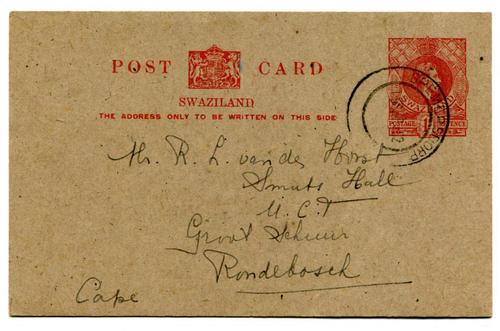 POST CARD
SWAZILAND
THE ADDRESS ONLY TO BE WRITTEN ON THIS SIDE
SWAZILAND
POSTAGE
PENCE
Mr. R. L. van der Horst
Smuts Hall
U.C.T
Groot Schuur
Rondebosch
Cape